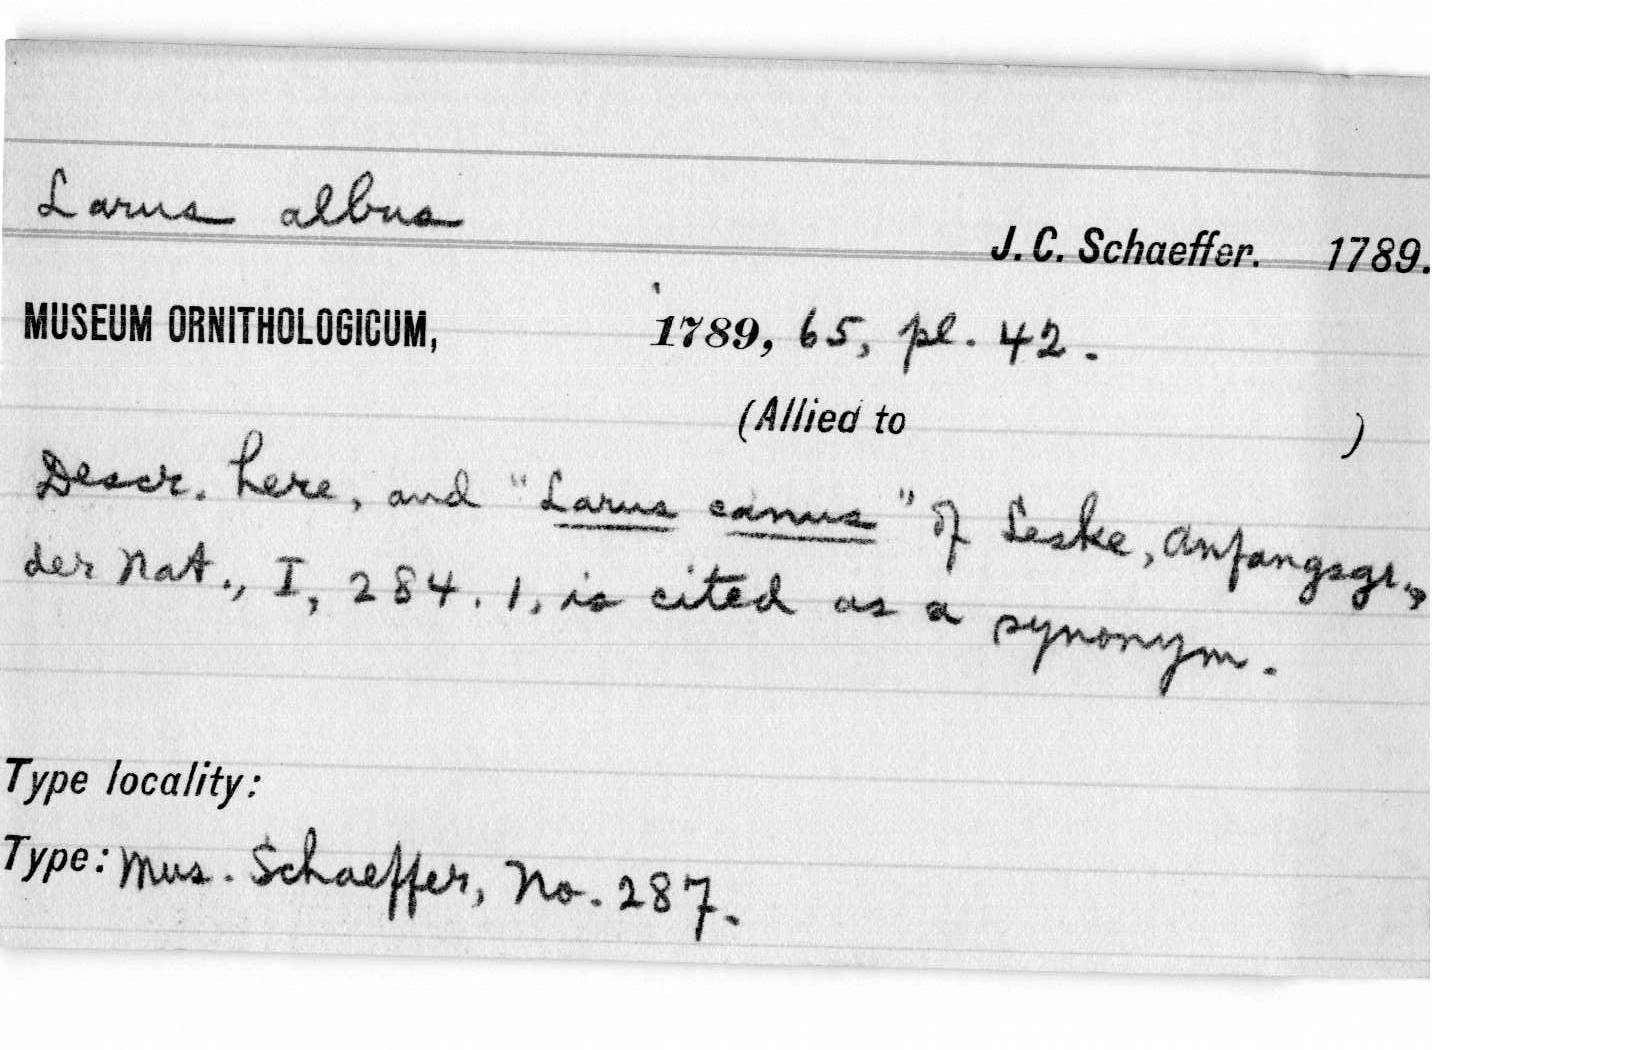 Larus albus
J. C. Schaeffer. 1789.
MUSEUM ORNITHOLOGICUM, 1789, 65, pl. 42.
(Allied to )
Descr. here, and "Larus canus" of Leske, Anfangsgr.,
der Nat., I, 284. 1, is cited as a synonym.
Type locality:
Type: Mus. Schaeffer, No. 287.